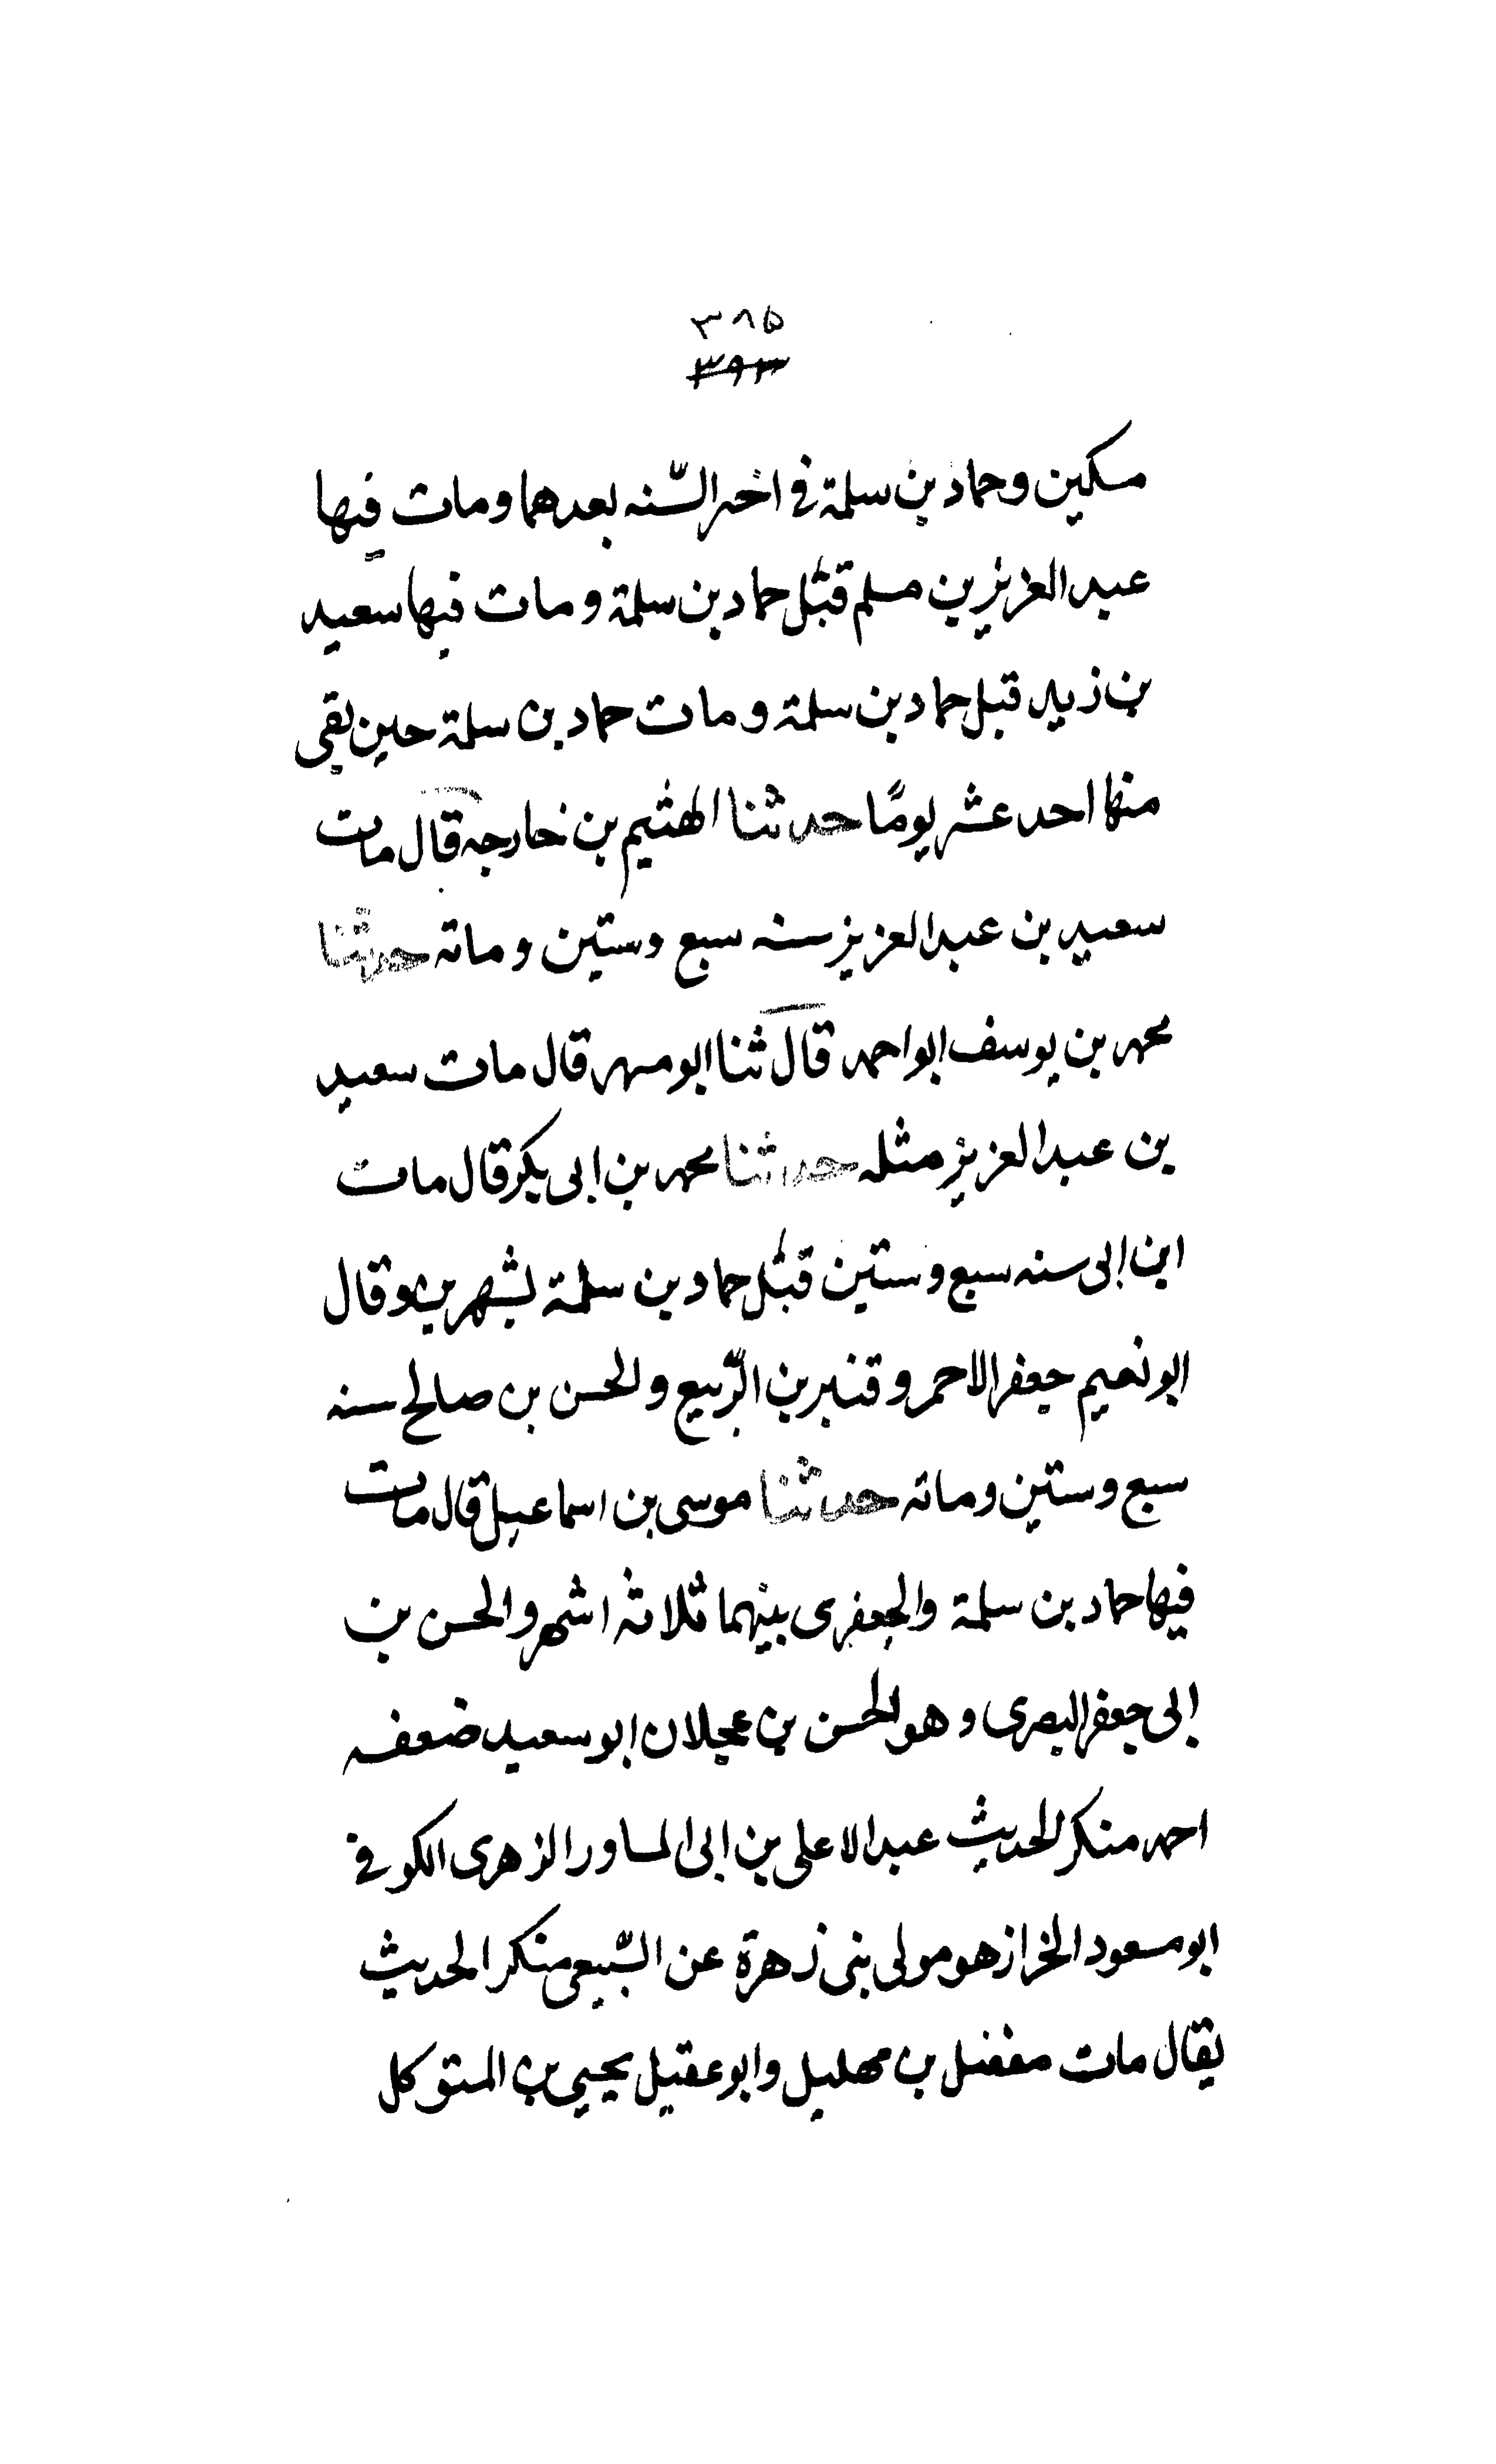 ٣٨٥
٣٩٣
مسكين وحماد بن سلمة في اخر السّنه بعدهما ومات فيها
عبد العزيز بن مسلم قبل حماد بن سلمة ومات فيها سعيد
بن زيد قبل حماد بن سلمة ومات حماد بن سلمة حين بقى
منها احد عشر يومًا حدثنا الهثيم بن خارجه قال مات
سعيد بن عبد العزيز سنه سبع وستين ومائه حدثنا
محمد بن يوسف ابو احمد قال ثنا ابو مسهر قال مات سعيد
بن عبد العزيز مثله حدثنا محمد بن ابى بكر قال مات
ابن ابى سنه سبع وستين قبل حماد بن سلمة بشهرين وقال
ابو نعيم جعفر الاحمر وقنبر بن الرّبيع والحسن بن صالح سنه
سبع وستين ومائه حدثنا موسى بن اسماعيل قال مات
فيها حماد بن سلمة والجعفرى بينهما ثلاثه اشهر والحسن بن
ابى جعفر البصرى وهو الحسن بن عجلان ابو سعيد ضعفه
احمد منكر الحديث عبد الاعلى بن ابى المساور الزهرى الكوفي
ابو مسعود الخراز هو مولى بنى زهرة عن السّبيعى منكر الحديث
يقال مات مفضل بن مهلهل وابو عقيل يحيى بن المتوكل